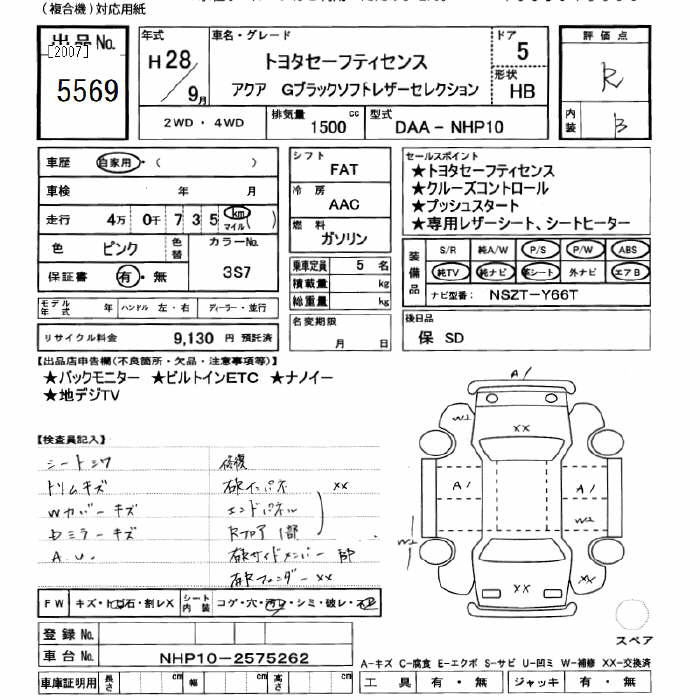 (複合機)対応用紙
出品No.
[2007]
5569
年式
H28/9月
車名・グレード
トヨタセーフティセンス
アクア Gブラックソフトレザーセレクション
ドア
5
形状
HB
2WD・4WD
排気量 1500 cc
型式 DAA-NHP10
評価点
R
内装 B
車歴 自家用・( )
車検 年 月
走行 4万 0千 7 3 5 km マイル ( )
色 ピンク 色替 カラーNo.
3S7
保証書 有・無
モデル年式 年 ハンドル 左・右 ディーラー・並行
リサイクル料金 9,130 円 預託済
シフト
FAT
冷房
AAC
燃料
ガソリン
乗車定員 5 名
積載量 kg
総重量 kg
名変期限
月 日
セールスポイント
★トヨタセーフティセンス
★クルーズコントロール
★プッシュスタート
★専用レザーシート、シートヒーター
装備品
S/R 純A/W P/S P/W ABS
純TV 純ナビ 革シート 外ナビ エアB
ナビ型番: NSZT-Y66T
後日品
保 SD
【出品店申告欄(不良箇所・欠品・注意事項等)】
★バックモニター ★ビルトインETC ★ナノイー
★地デジTV
【検査員記入】
シートシワ 修復
トリムキズ XX
Wカバーキズ エンドパネル
キズ
A.U.
XX
FW キズ・石・割レX シート内装 コゲ・穴・汚レ・シミ・破レ・
登録No.
車台No. NHP10-2575262
車庫証明用 長さ cm 幅 cm 高さ cm
A1
W2
XX
A1
A1
W2
W2
XX
スペア
A-キズ C-腐食 E-エクボ S-サビ U-凹ミ W-補修 XX-交換済
工具 有・無 ジャッキ 有・無